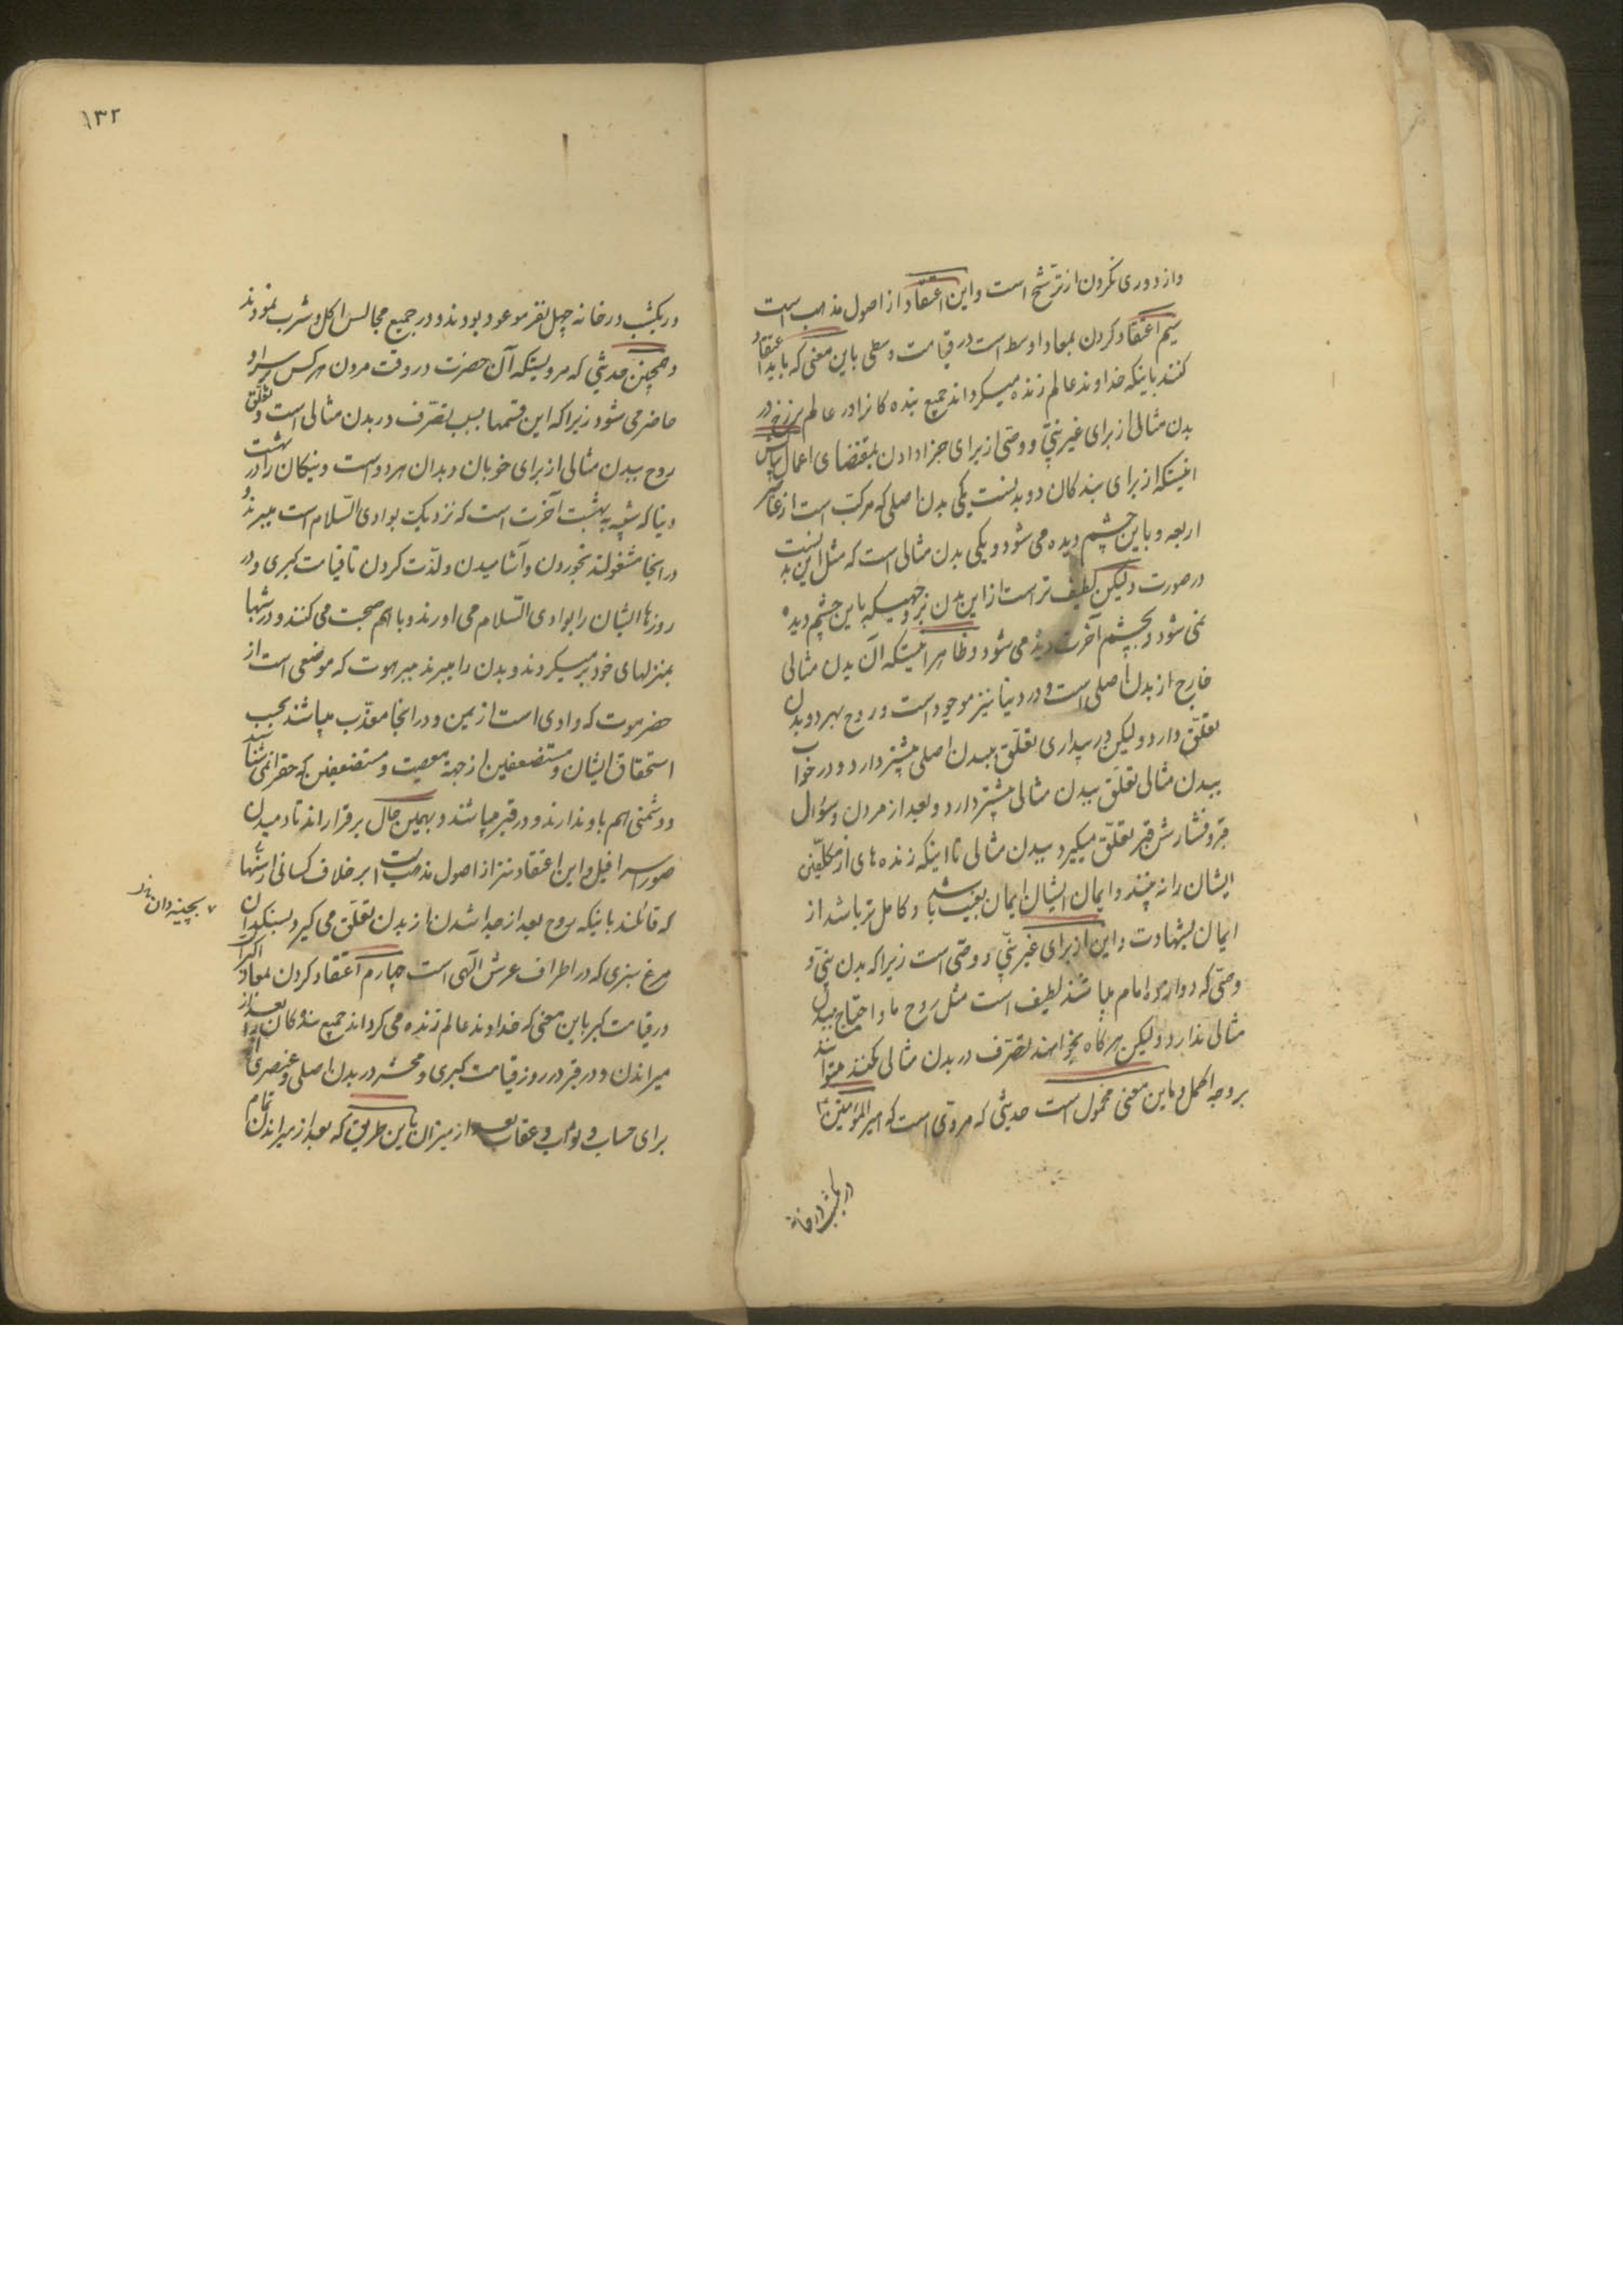 واز دوری نکردن از ترشّح است واین اعتقاد از اصول مذهب است
سیم اعتقاد کردن بمعاد اوسط است در قیامت وسطی باین معنی که باید اعتقاد
کنند باینکه خداوند عالم زنده میگرداند جمیع بنده کانرا در عالم برزخ در
بدن مثالی از برای غیر نبیّ و وصّی از برای جزا دادن بمقتضای اعمال
اینستکه از برای بندکان دو بدنست یکی بدن اصلی که مرکب است از عناصر
اربعه و باین چشم دیده می شود و یکی بدن مثالی است که مثل این بدنست
در صورت ولیکن لطیف تر است از این بدن بر وجهیکه باین چشم دیده
نمی شود و بچشم آخرت دیده می شود و ظاهر اینستکه آن بدن مثالی
خارج از بدن اصلی است و در دنیا نیز موجود است و روح بهر دو بدن
تعلّق دارد ولیکن در بیداری تعلّق ببدن اصلی بیشتر دارد و در خواب
ببدن مثالی تعلّق ببدن مثالی بیشتر دارد و بعد از مردن و سؤال
قبر و فشارش قبر تعلّق میگیرد ببدن مثالی تا اینکه زنده های از مکلّفین
ایشان را نه بینند و ایمان ایشان ایمان بغیب باشد و کامل تر باشد از
ایمان بشهادت و این از برای غیر نبیّ و وصّی است زیرا که بدن نبیّ و
وصّی که دوازده امام میباشند لطیف است مثل روح ما و احتیاج ببدن
مثالی ندارد ولیکن هرکاه بخواهند تصرّف در بدن مثالی بکنند میتوانند
بر وجه اکمل و باین معنی محمول است حدیثی که مروّی است که امیر المؤمنین ع
در یکشب در خانه
۱۳۲
در یکشب در خانه چهل نفر موعود بودند و در جمیع مجالس اکل و شرب نمودند
و همچنین حدیثی که مرویستکه آن حضرت در وقت مردن هر کس بر سر او
حاضر می شود زیرا که این قسمها بسبب تصرّف در بدن مثالی است و تعلّق
روح ببدن مثالی از برای خوبان و بدان هر دو است و نیکان را در بهشت
دنیا که شبیه به بهشت آخرت است که نزدیکست بوادی السّلام است میبرند و
در آنجا مشغولند بخوردن و آشامیدن و لذّت کردن تا قیامت کبری و در
روزها ایشان را بوادی السّلام می اورند و با هم صحبت می کنند و در شبها
بمنزلهای خود بر میگردند و بدن را میبرند ببرهوت که موضعی است از
حضرموت که وادی است از یمن و در آنجا معذّب میباشند بحسب
استحقاق ایشان و مستضعفین از جهة معصیت و مستضعفین که حقرا نمی شناسند
و دشمنی هم با او ندارند و در قبر میباشند و بهمین حال برقرار اند تا دمیدن
صور اسرافیل و این اعتقاد نیز از اصول مذهب است بر خلاف کسانی از سنّیها
که قائلند باینکه روح بعد از جدا شدن از بدن تعلّق می کیرد بسنکدان
۷ بچینه دان نیز
مرغ سبزی که در اطراف عرش الهی است چهارم اعتقاد کردن بمعاد اکبر است
در قیامت کبر باین معنی که خداوند عالم زنده می کرداند جمیع بندکان را بعد از
میراندن و در قبر در روز قیامت کبری و محشر در بدن اصلی و عنصری از
برای حساب و ثواب و عقاب بعد از میزان باین طریق که بعد از میراندن تمام